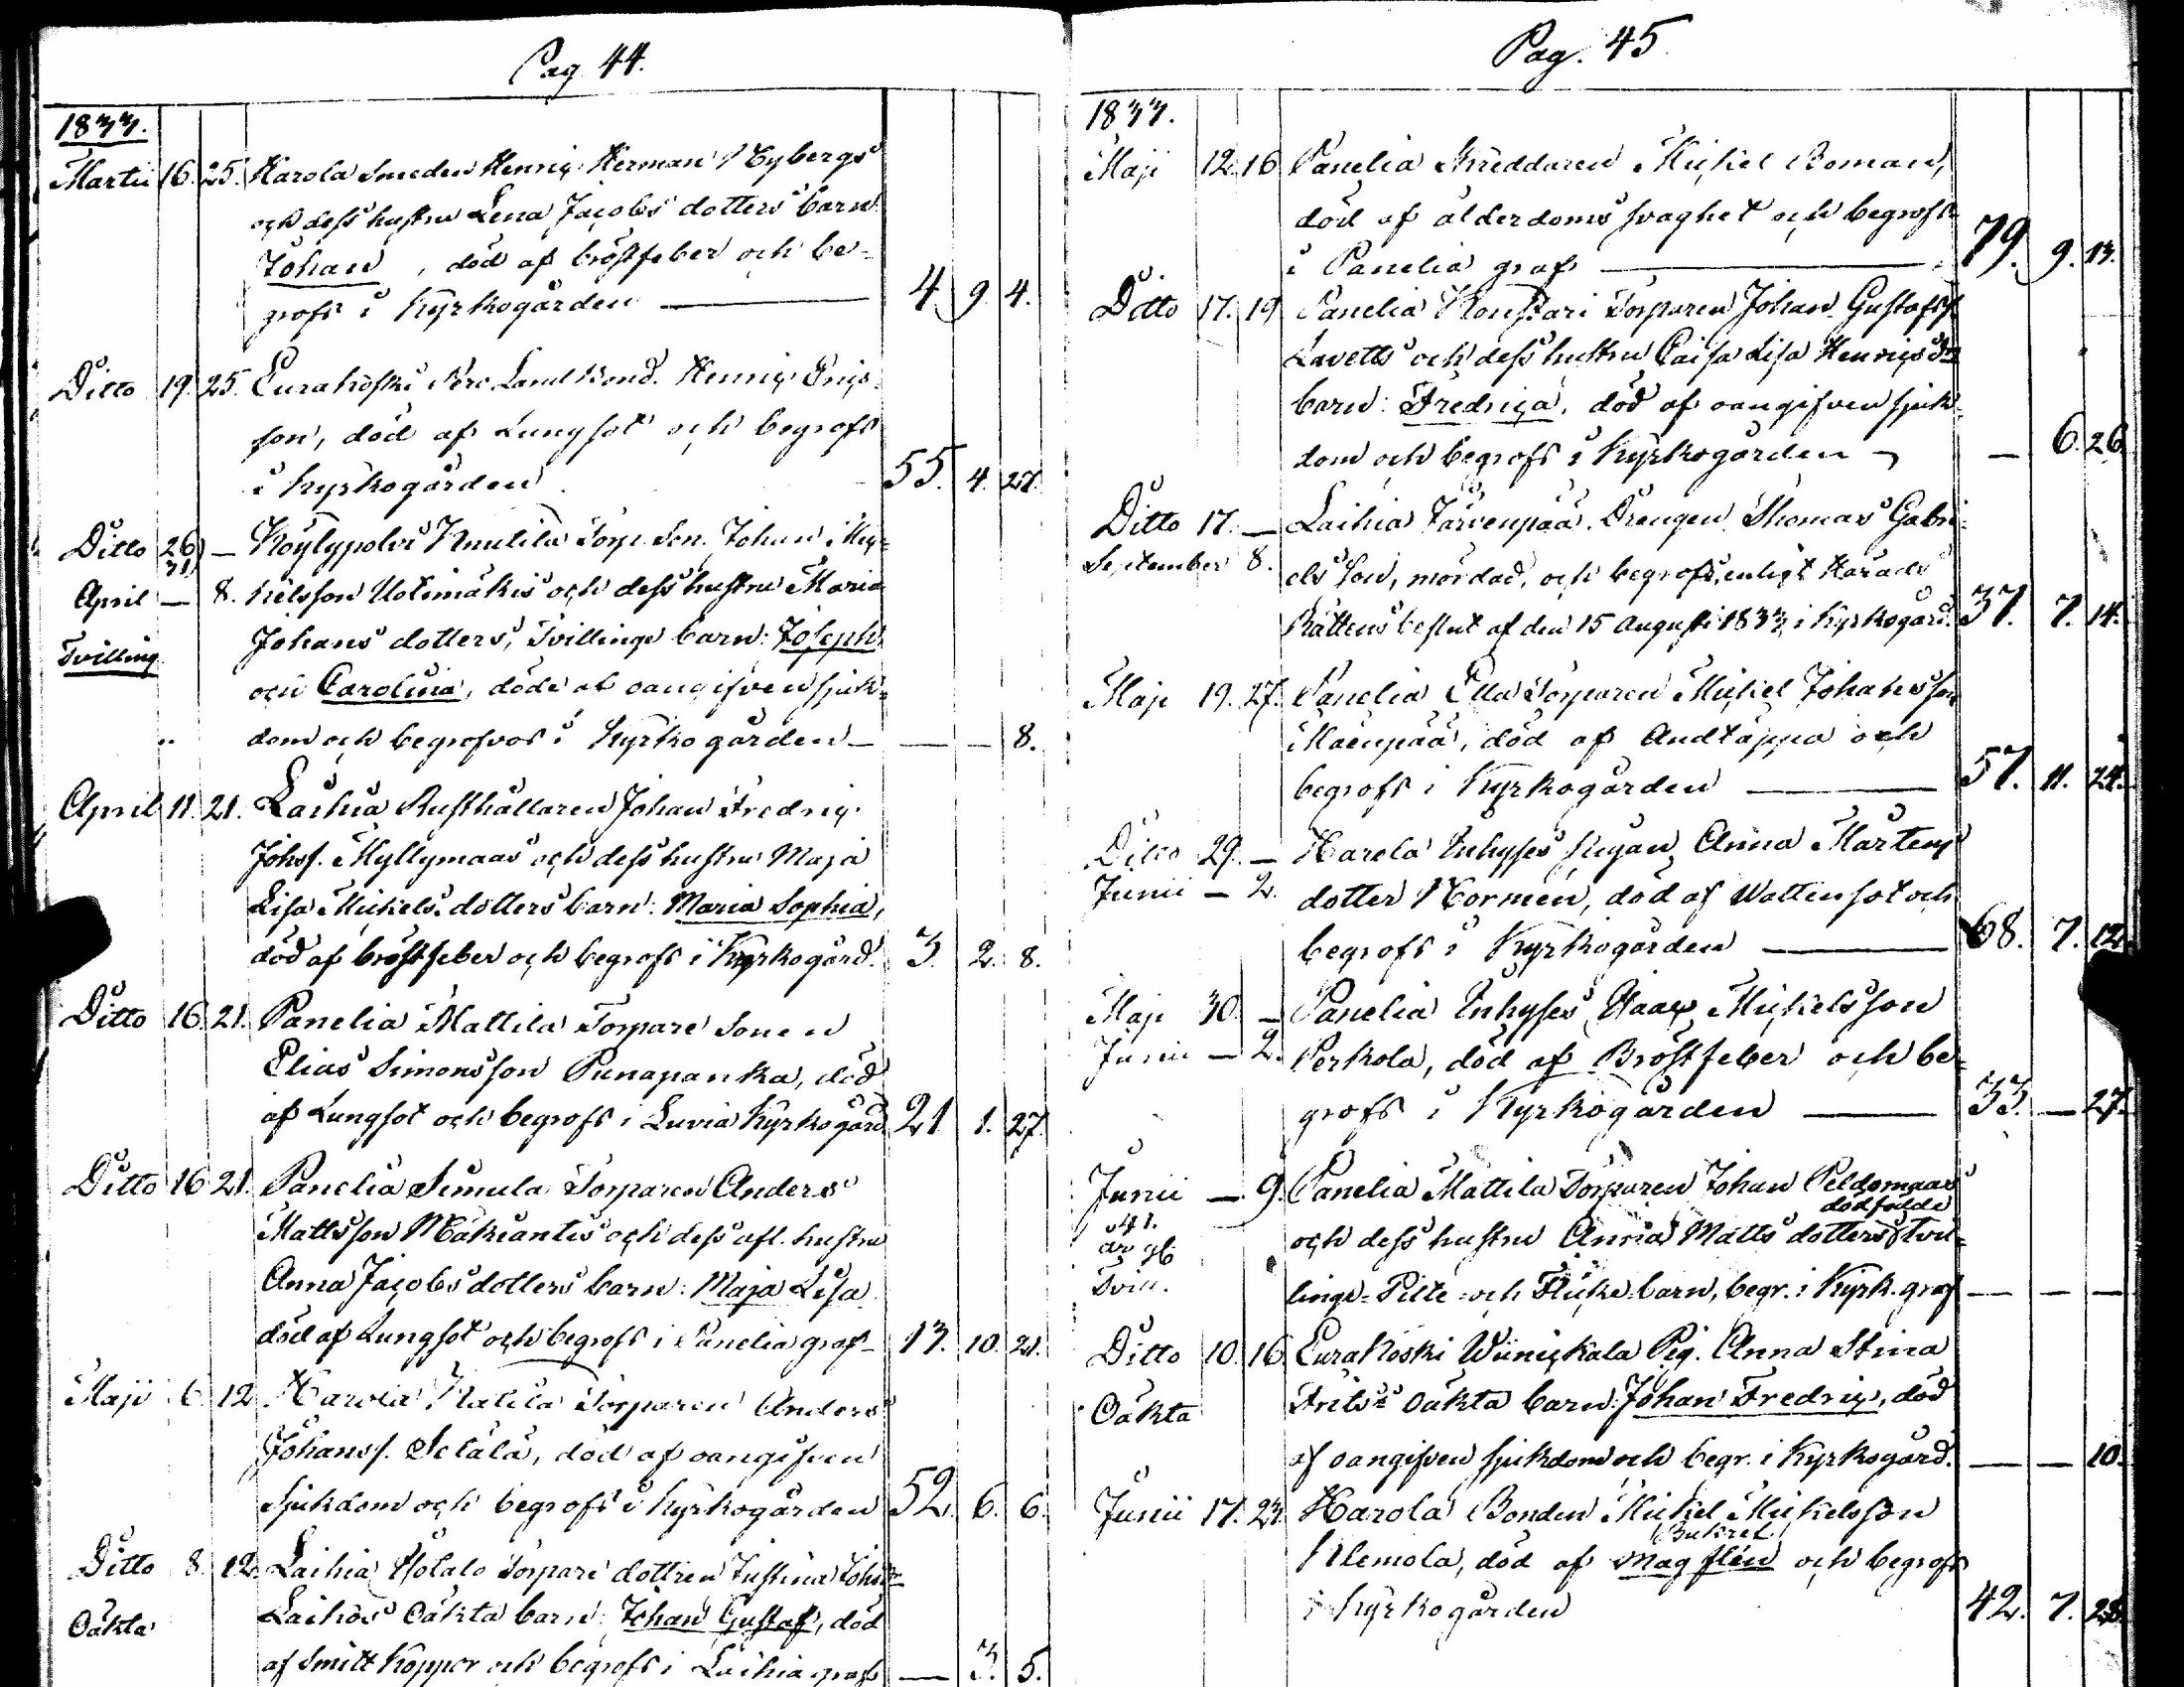 Pag. 44.
1833.
Martii 16. 25. Harola Smeden Henric Herman Nybergs
och dess hustru Lena Jacobs dotters barn
Johan, död af bröstfeber och be-
grofs i Kyrkogården — 4. 9. 4.
Ditto 19. 25. Eurakoski Land Bond. Henric Eriçs-
son, död af Lungsot och begrofs
i Kyrkogården 55. 4. 27.
Ditto 26 — Köylypolvi Knutila Torp. Son. Johan Mic-
31
April — 8. kelsson Uotimäkis och dess hustru Maria
Tvilling Johans dotters, Tvillinge barn: Joseph
och Carolina, döde af oangifven sjuk-
dom och begrofvos i Kyrkogården — — — 8.
April 11. 21. Laihia Rusthållaren Johan Fredric
Johss. Myllymaas och dess hustru Maja
Lisa Mickels dotters barn: Maria Sophia,
död af bröstfeber och begrofs i Kyrkogård. 3. 2. 8.
Ditto 16. 21. Panelia Mattila Torpare Sonen
Elias Simonsson Punapanka, död
af Lungsot och begrofs i Luvia Kyrkogård 21 1. 27.
Ditto 16 21. Panelia Simula Torparen Anders
Mattsson Mäkiäntis och dess afl. hustru
Anna Jacobs dotters barn: Maja Lisa
död af Lungsot och begrofs i Panelia graf — 13. 10. 21.
Maji 6. 12. Harola Torparen Anders
Johanss. Setälä, död af oangifven
sjukdom och begrofs i Kyrkogården 52. 6. 6.
Ditto 8. 12. Laihia Torpare dottren Justina
Oäkta Laihos Oäkta barn: Johan Gustaf, död
af Smitt Koppor och begrofs i Laihia graf — 3. 5.
Pag. 45.
1833.
Maji 12. 16 Panelia Skreddaren Mickel Boman,
död af ålderdoms svaghet och begrofs
i Panelia graf — 79. 9. 13.
Ditto 17. 19 Panelia Konstari Torparen Johan Gustafss.
Lavetts och dess hustru Caisa Lisa Henrics dr
barn: Fredrica, död af oangifven sjuk-
dom och begrofs i Kyrkogården — — 6. 26
Ditto 17. — Laihia Järvenpää Drengen Thomas Gabri-
September 8. els Son, mördad, och begrofs, enligt Härads
Rättens beslut af den 15 Augusti 1833, i Kyrkogård. 37. 7. 14.
Maji 19. 27. Panelia Ella Torparen Mickel Johansson
Mäenpää, död af Andtäppa och
begrofs i Kyrkogården — 57. 11. 24.
Ditto 29. — Harola Inhyses Anna Mårtens
Junii — 2. dotter Normén, död af Wattensot och
begrofs i Kyrkogården — 68. 7. 12.
Maji 30. — Panelia Inhyses Isaac Mickelsson
Junii — 2. Perkola, död af Bröstfeber och be-
grofs i Kyrkogården — 33. — 27.
Junii — 9. Panelia Mattila Torparen Johan Peldomaas
41. dödfödde
och dess hustru Anna Matts dotters tvil-
Tvill. linge-Pilte- och Flicke-barn, begr. i Kyrk. graf — — —
Ditto 10. 16. Eurakoski Wiinickala Pig. Anna Stina
Oäkta Frits dr Oäkta barn: Johan Fredric, död
af oangifven sjukdom och begr. i Kyrkogård. — — 10.
Junii 17. 23. Harola Bonden Mickel Mickelsson
(Bukref)
Klemola, död af Mag flén och begrofs
i Kyrkogården 42. 7. 28.